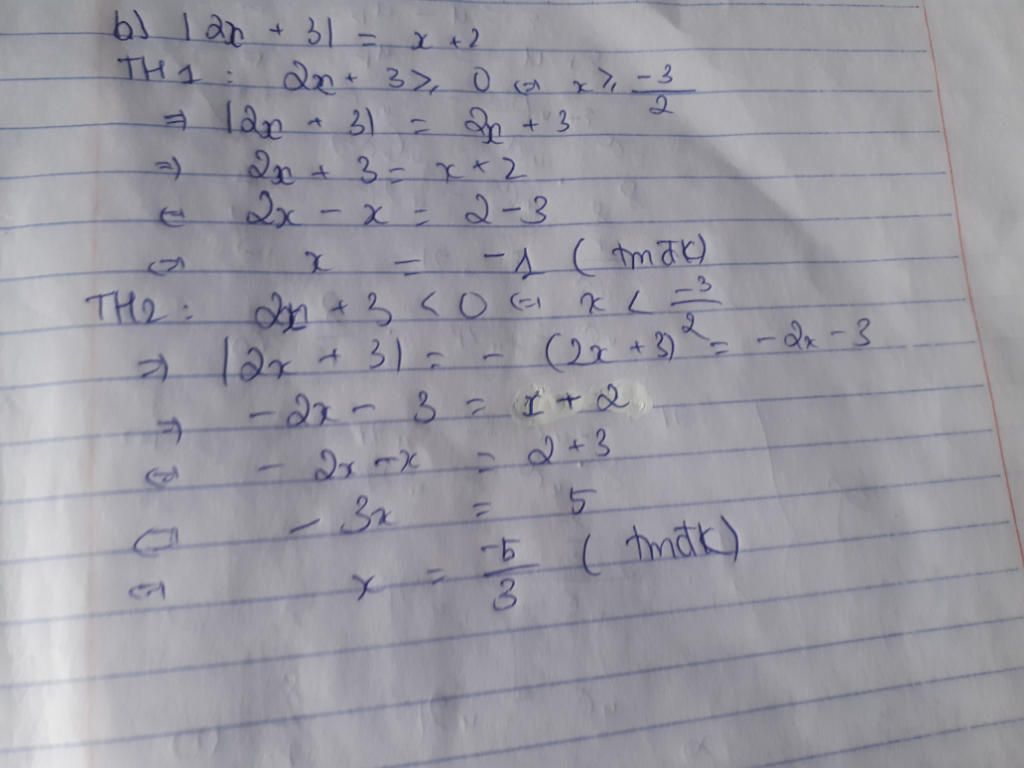 b) |2x + 3| = x + 2
TH1: 2x + 3 ≥ 0 ⇔ x ≥ -3/2
⇒ |2x + 3| = 2x + 3
⇒ 2x + 3 = x + 2
⇔ 2x - x = 2 - 3
⇔ x = -1 (tmđk)
TH2: 2x + 3 < 0 ⇔ x < -3/2
⇒ |2x + 3| = - (2x + 3) = -2x - 3
⇒ -2x - 3 = x + 2
⇔ - 2x - x = 2 + 3
⇔ - 3x = 5
⇔ x = -5/3 (tmđk)